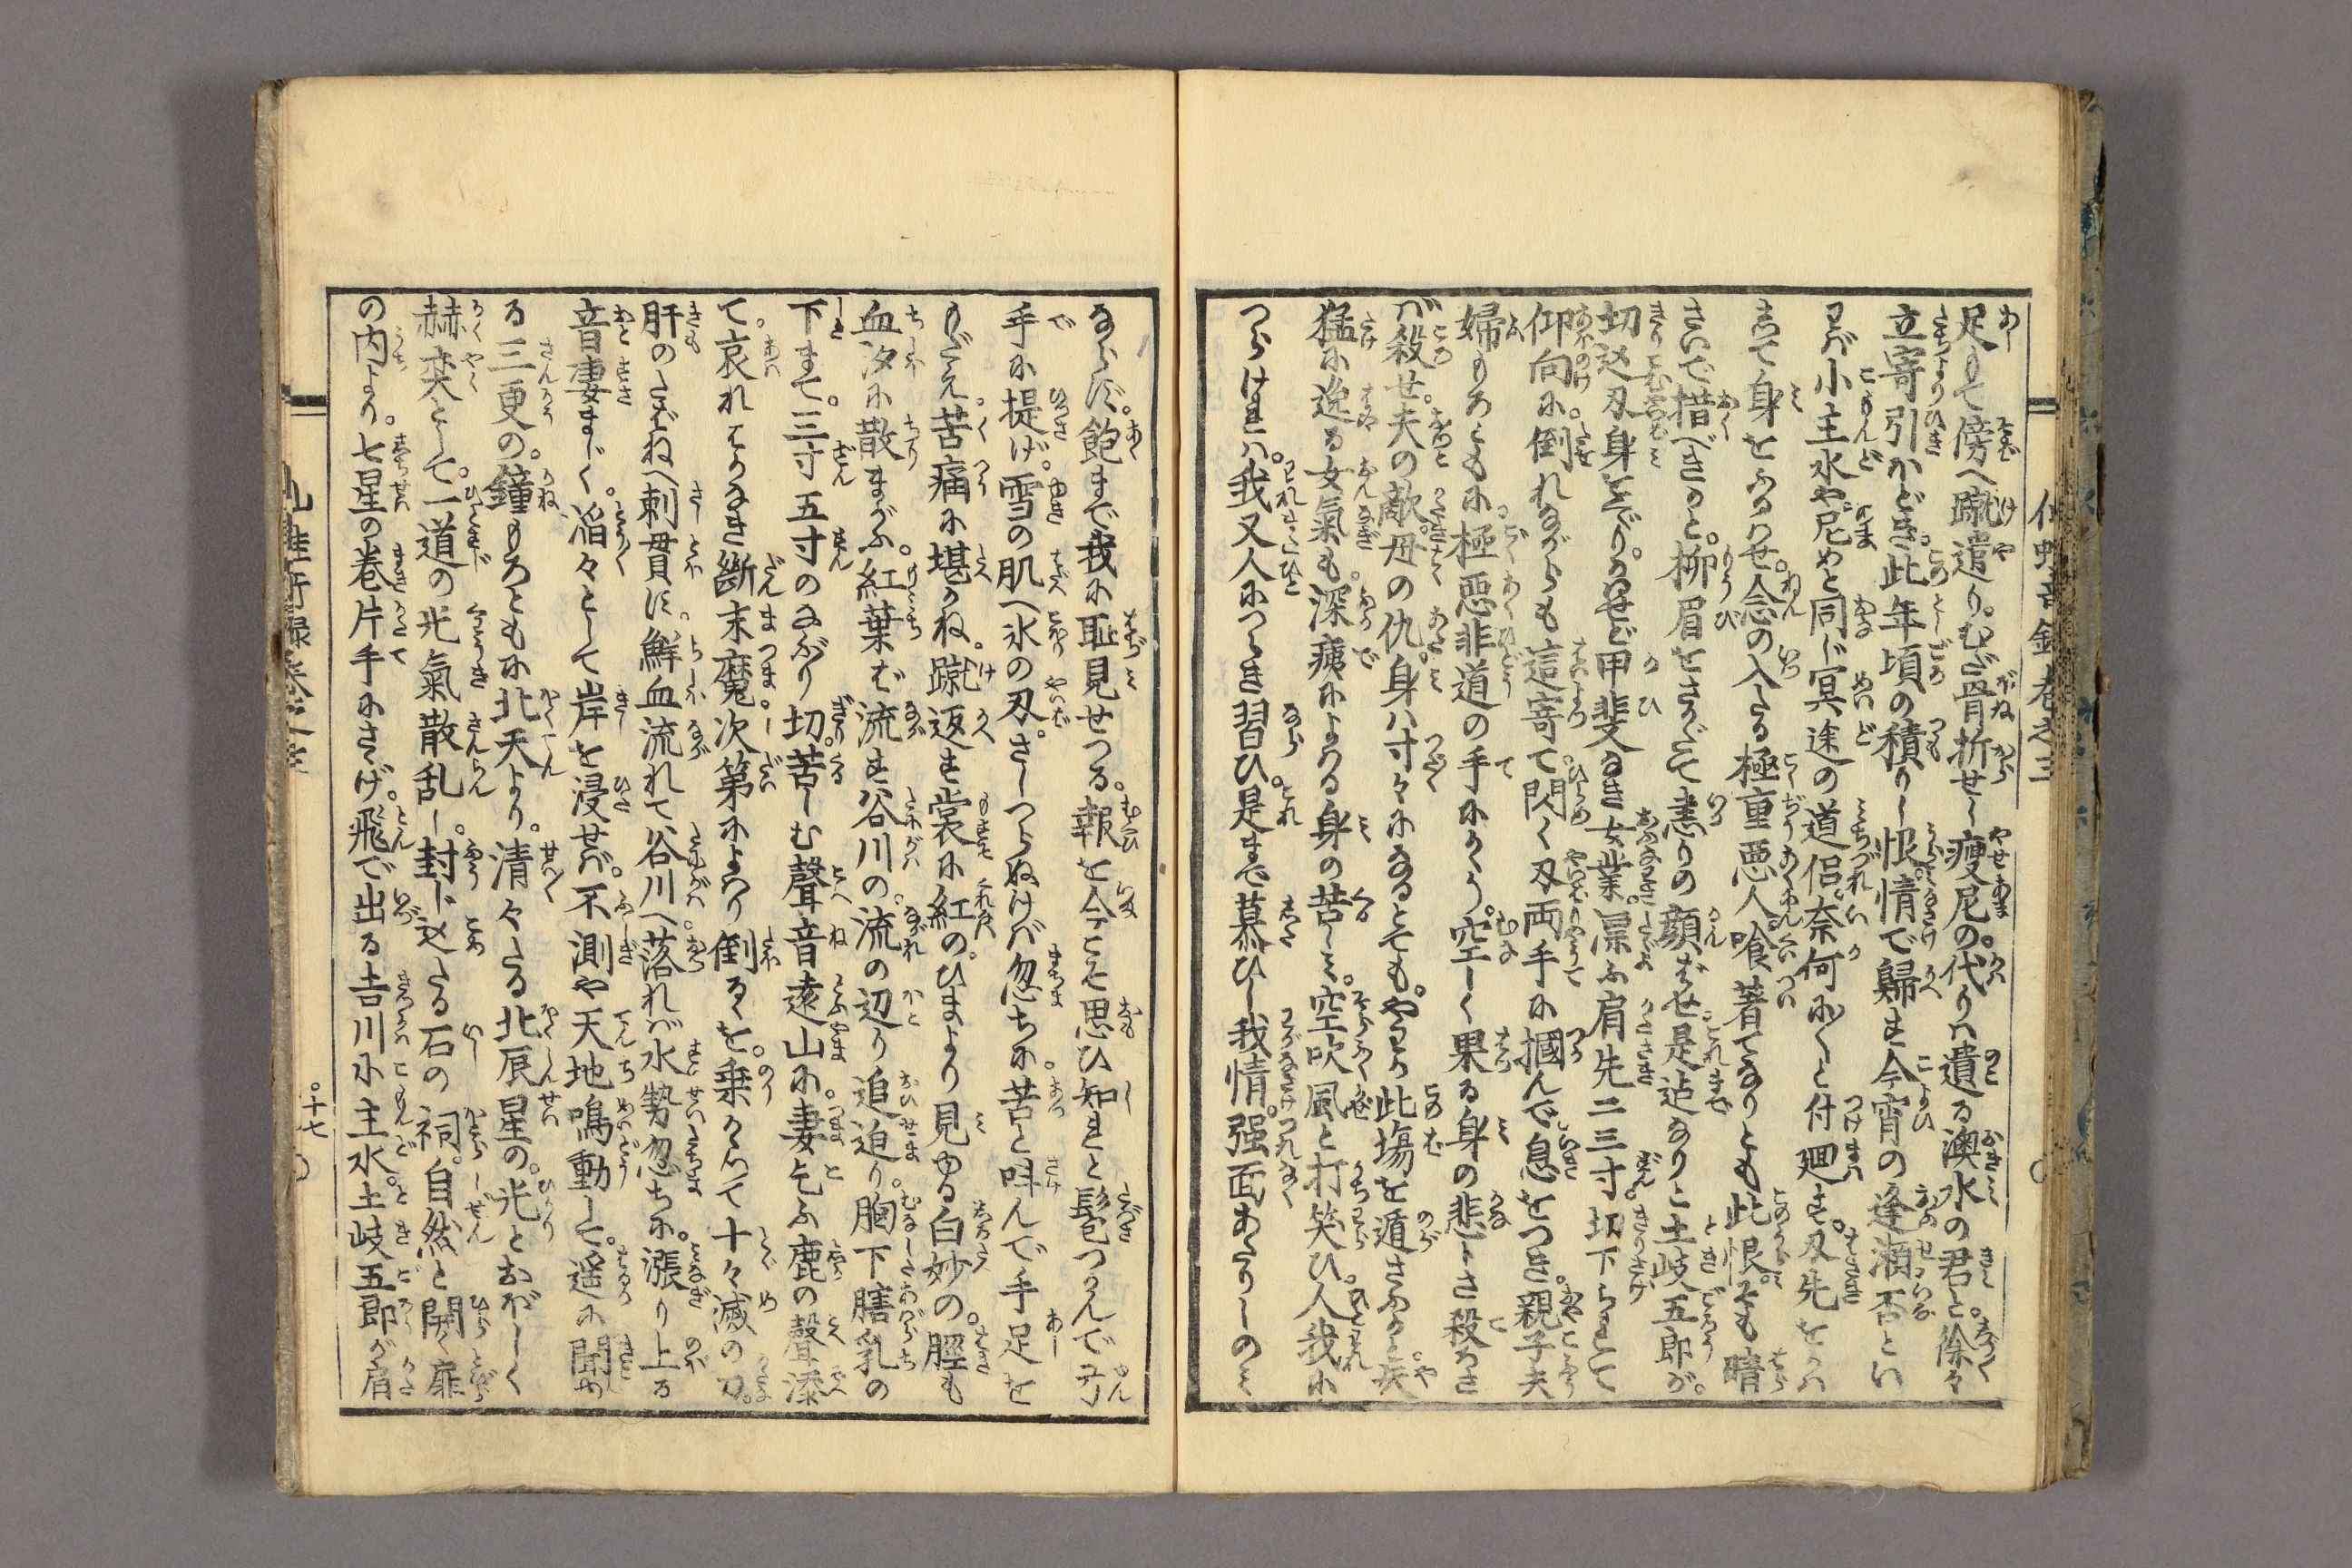 足もて傍へ蹴遣り。むだ骨折せし瘦尼の。代りハ遺る澳水の君と。徐々
立寄引かどき。此年頃の積りし恨。情で歸す今宵の逢瀬。否とい
ハゞ小主水や。尼めと同じ冥途の道侶。奈何に〳〵と付廻す。刃先をハ
して身をふるハせ。念の入たる極重悪人。喰著てなりとも此恨。でも晴
さいで措べきかと。柳眉をさかだて恚りの顔ばせ是迠なりと土岐五郎が。
切込刃身をどりかはせど甲斐なき女業。漂ふ肩先二三寸。切下られて
仰向に。倒れながらも這寄て。閃く刃両手に摑んで息をつき。親子夫
婦もろともに。極悪非道の手にかゝり。空しく果る身の悲しさ殺さ
バ殺せ。夫の敵。母の仇。身ハ寸々になるとても。やハか此塲を遁さふかと。疾
猛に逸る女氣も。深痍によハる身の苦しミ。空吹風と打笑ひ。人我に
つらけれハ。我又人につらき習ひ。是まで慕ひし我情。强面あたりしのミ
ならず。飽まで我に恥見せつる。報を今こそ思ひ知れと髻つかんで刃
手に提げ。雪の肌へ氷の刃。さしつらぬけバ忽ちに。苦と叫んで手足を
もだえ。苦痛に堪かね。蹴返す裳に紅の。ひまより見ゆる白妙の。脛も
血汐に散まがふ。紅葉ば流す谷川の。流の辺り追迫り。胸下膳乳の
下まで。三寸五寸のなぶり切。苦しむ聲音遠山に。妻乞ふ鹿の聲添
て。哀れはかなき斷末魔。次第によハり倒るゝを。乗かゝつて十々滅の刀。
肝のたばねへ刺貫ば。鮮血流れて谷川へ。落れバ水勢忽ちに。漲り上る
音凄まじく。滔々として岸を浸せバ。不測や天地鳴動して。遥に聞ゆ
る三更の。鐘もろともに北天より。清々たる北辰星の。光とおぼしく
赫奕として。一道の光氣散乱し。封じ込たる石の祠。自然と開く扉
の内より。七星の卷片手にさゝげ。飛で出る吉川小主水。土岐五郎が肩
十七